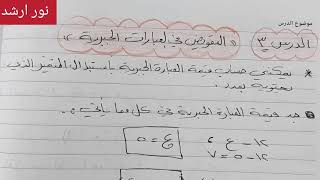 نور ارشد
موضوع الدرس
الدرس ٣ " التعويض في العبارات الجبرية "
* يمكنني حساب قيمة العبارة الجبرية باستبدال المتغير الذي
تحتويه بعدد .
جد قيمة العبارة الجبرية في كل مما يأتي :
١٢ - ع ، ع = ٥
١٢ - ٥ = ٧